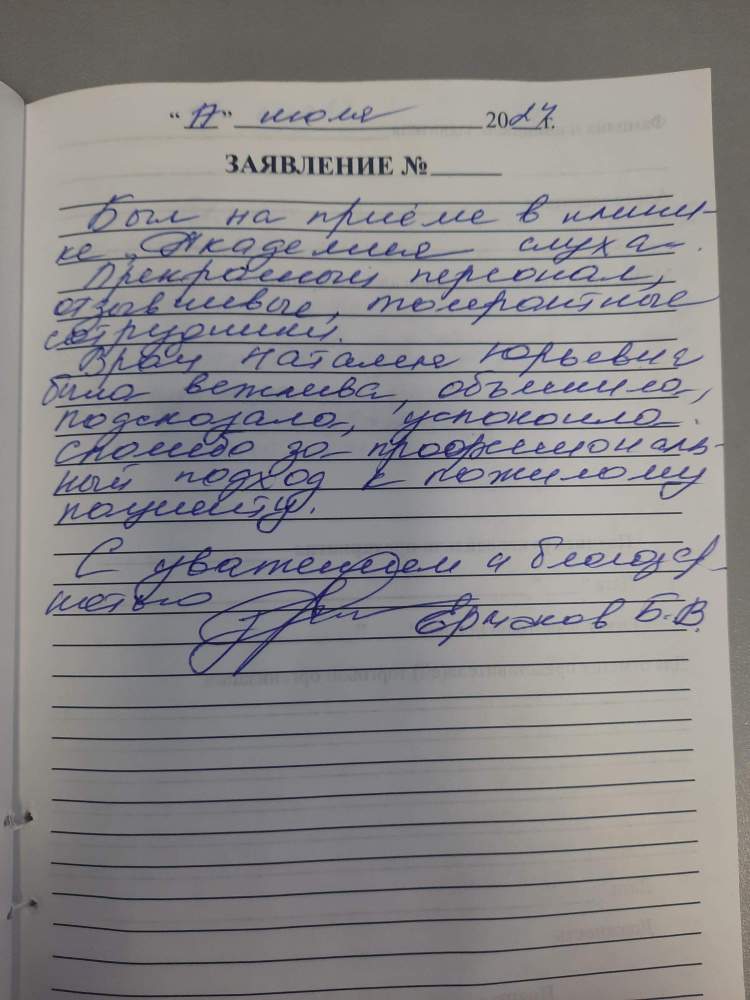 "17" июля 2024г.
ЗАЯВЛЕНИЕ №
Был на приёме в клини-
ке „Академия слуха".
Прекрасный персонал,
отзывчивые, толерантные
сотрудники.
Врач Наталия Юрьевич
была вежлива, объяснила,
подсказала, успокоила.
Спасибо за професиональ-
ный подход к пожилому
пациенту.
С уважением и благодар-
ностью
Ермаков Б.В.